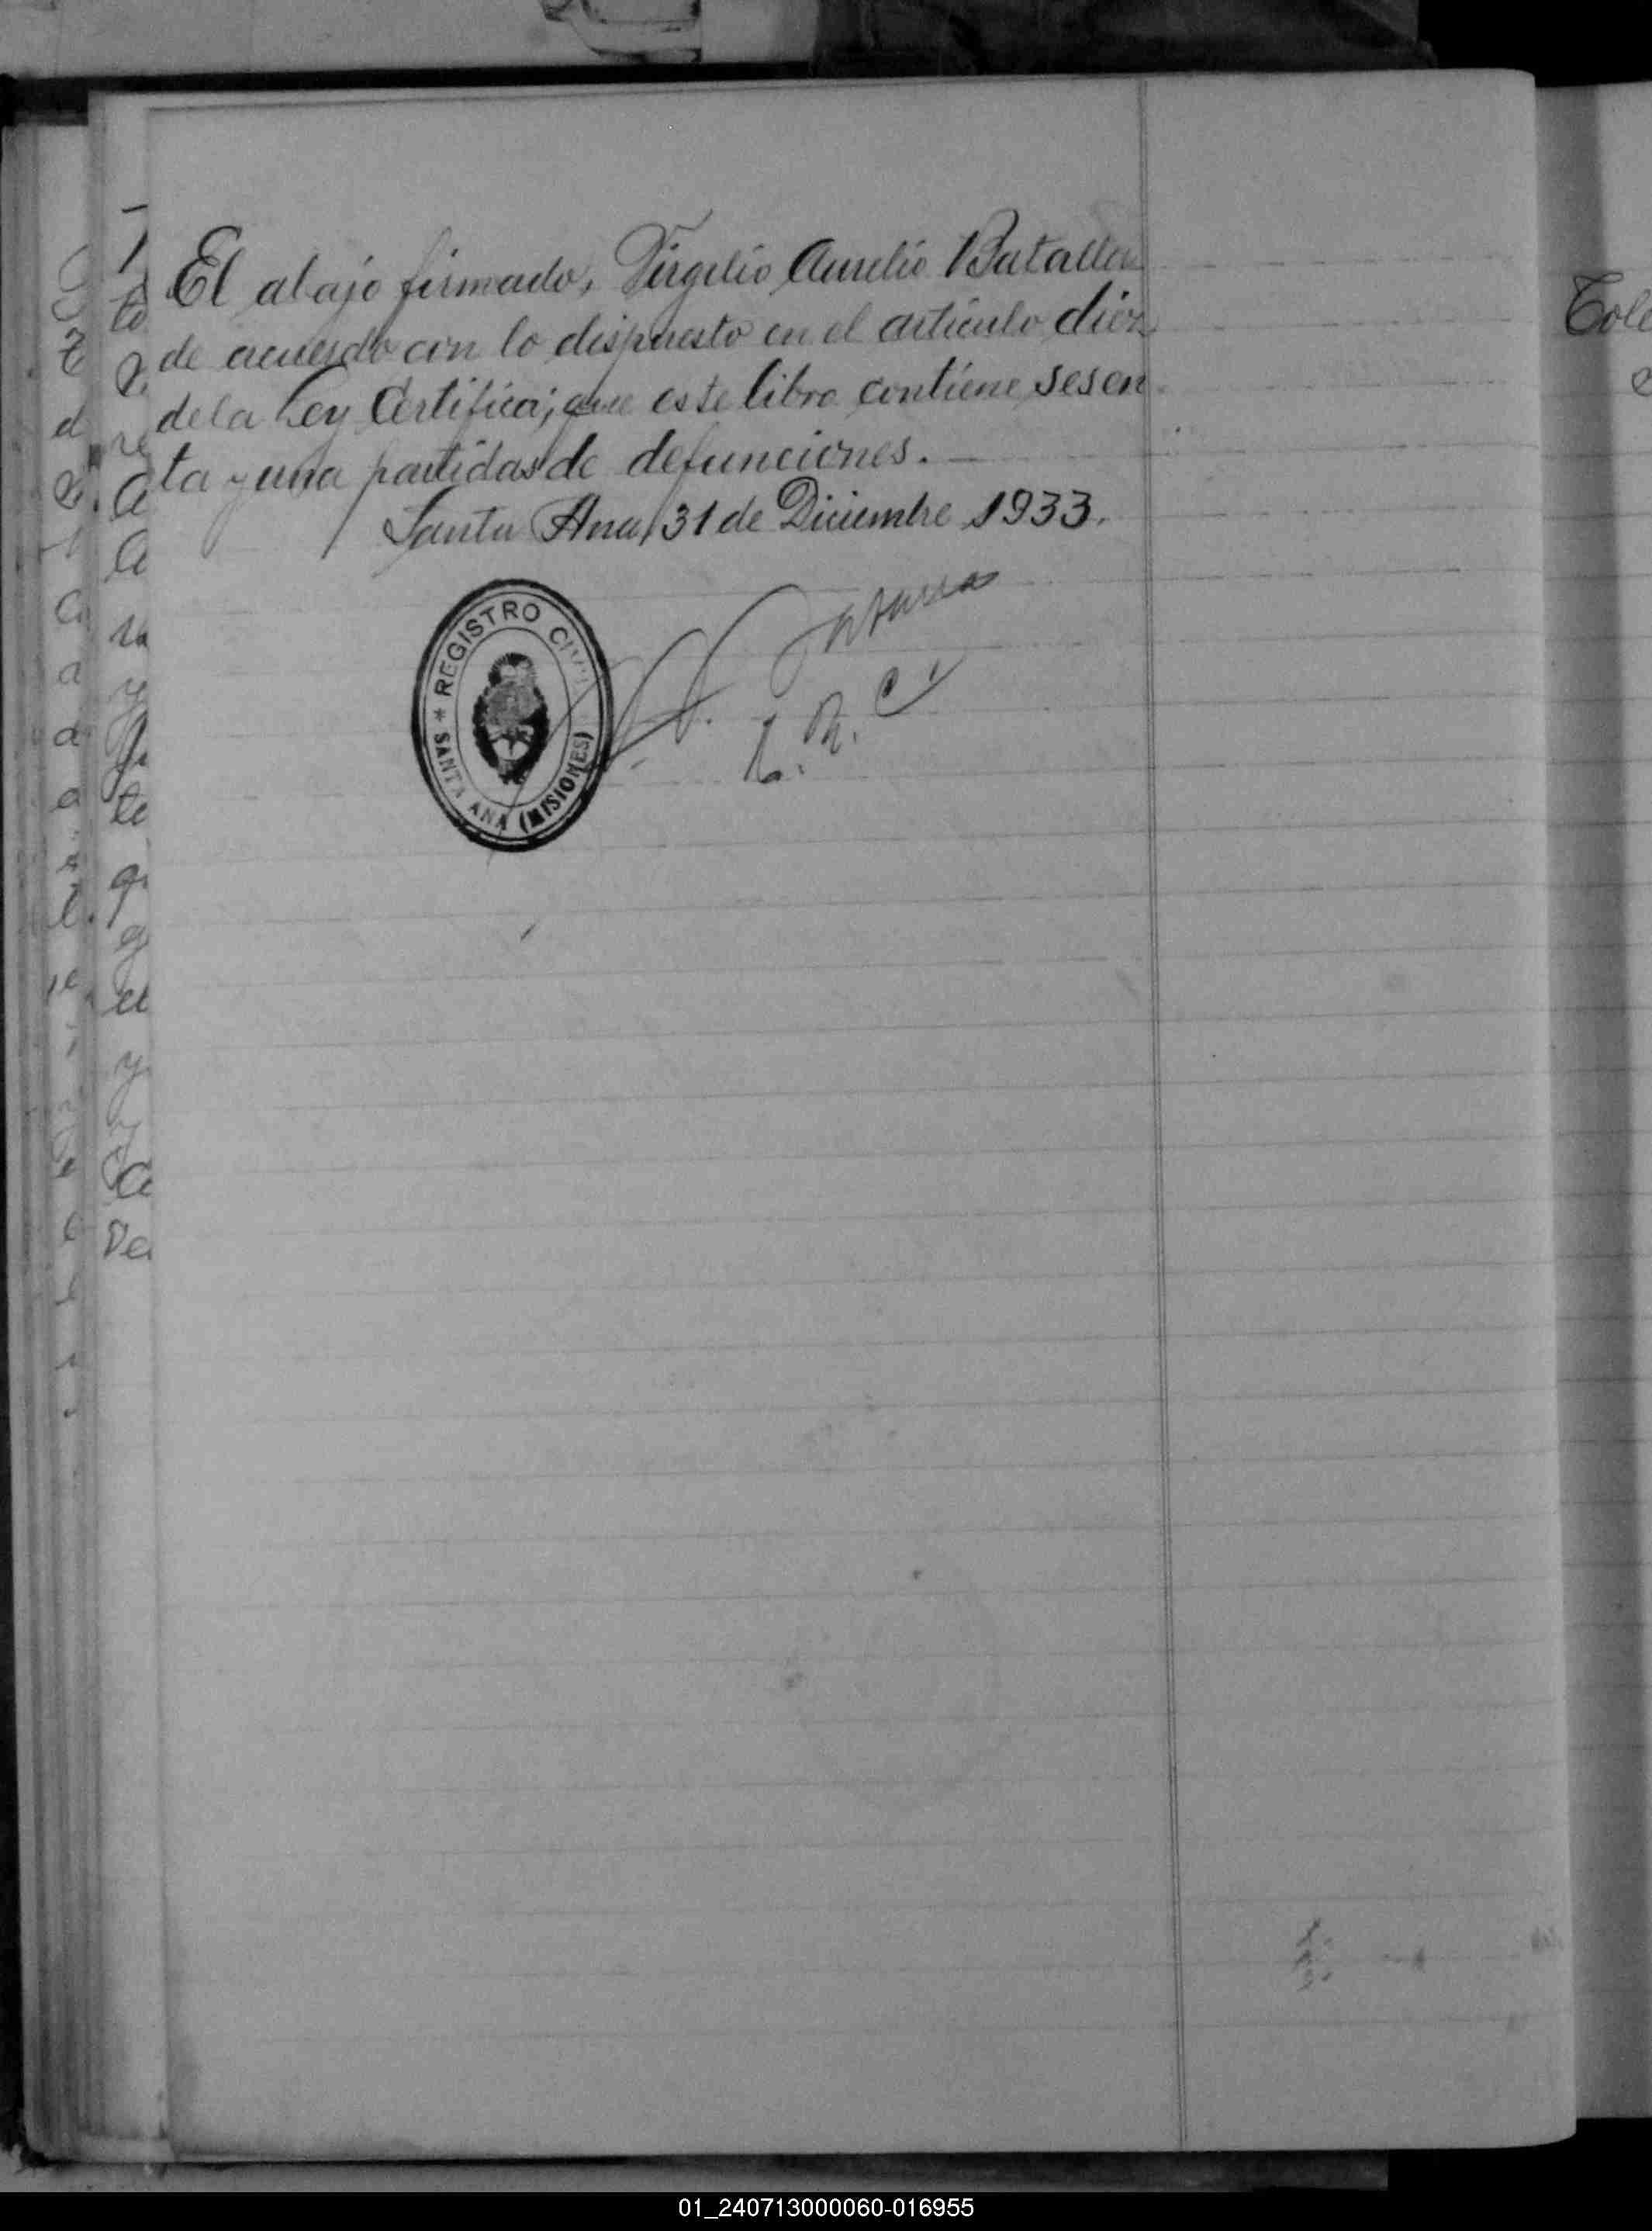 El abajo firmado, Virgilio Aurelio Batalla
de acuerdo con lo dispuesto en el artículo diez
de la Ley Certifica; que este libro contiene sesen
ta y una partidas de defunciones. —
Santa Ana, 31 de Diciembre 1933.
* REGISTRO CIVIL *
SANTA ANA (MISIONES)
01_240713000060-016955